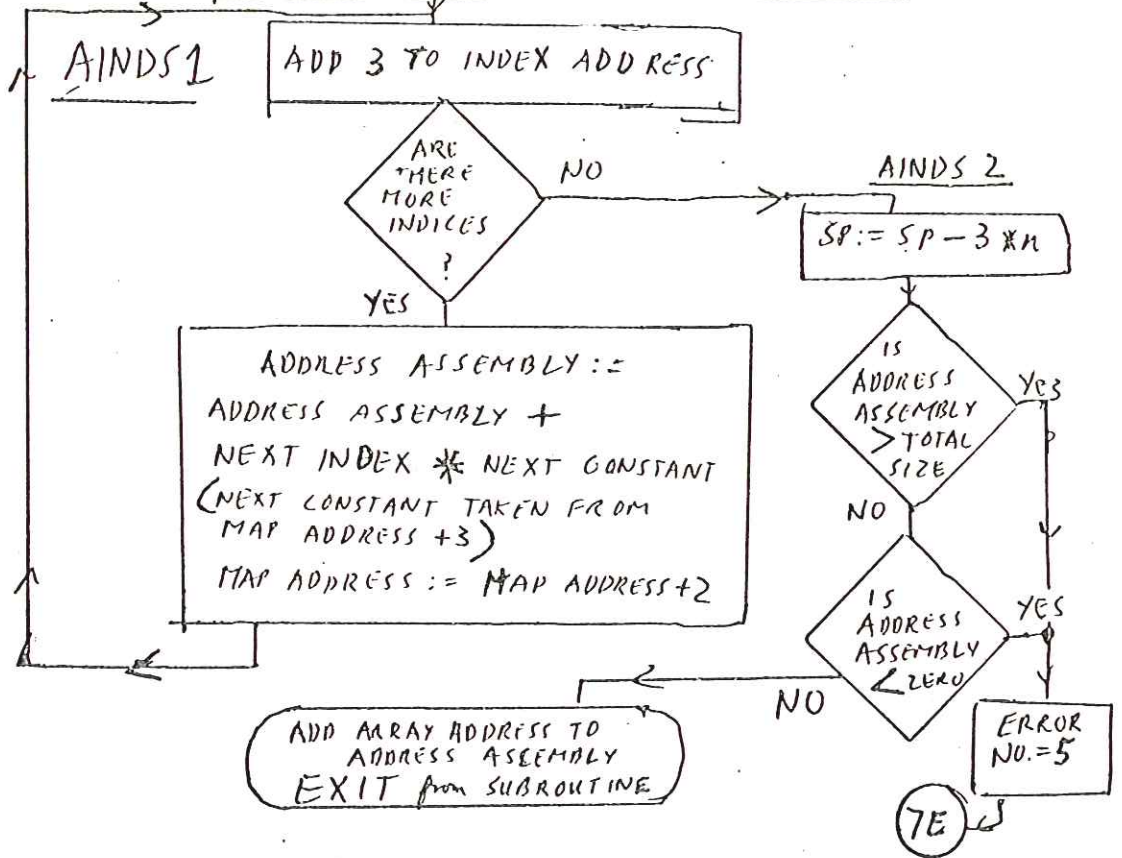 AINDS1
ADD 3 TO INDEX ADDRESS
ARE
THERE
MORE
INDICES
?
NO
YES
ADDRESS ASSEMBLY :=
ADDRESS ASSEMBLY +
NEXT INDEX * NEXT CONSTANT
(NEXT CONSTANT TAKEN FROM
MAP ADDRESS +3)
MAP ADDRESS := MAP ADDRESS+2
AINDS 2
SP := SP - 3 * n
IS
ADDRESS
ASSEMBLY
> TOTAL
SIZE
YES
NO
IS
ADDRESS
ASSEMBLY
< ZERO
YES
NO
ADD ARRAY ADDRESS TO
ADDRESS ASSEMBLY
EXIT from SUBROUTINE
ERROR
NO. = 5
7E